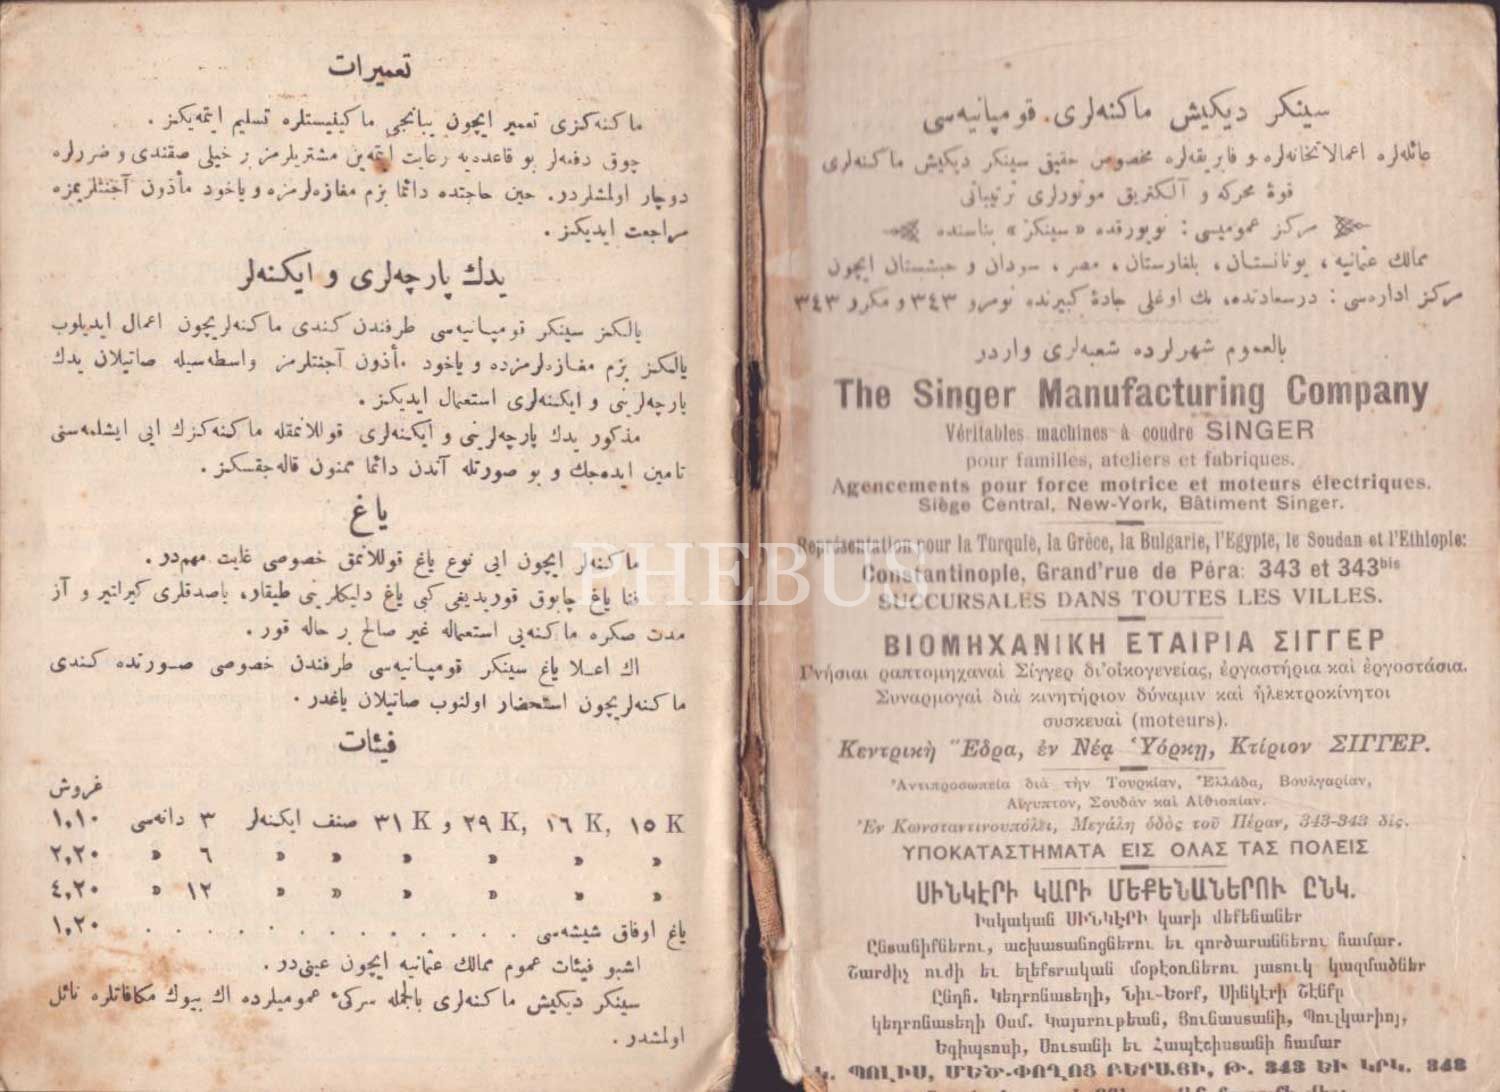 تعميرات
ماكنه‌كزى تعمير ايچون يبانجى ماكينيستلره تسليم ايتمه‌يكز .
چوق دفعه‌لر بو قاعده‌يه رعايت ايتمه‌ين مشتريلرمز بر خيلى صقندى و ضررلره
دوچار اولمشلردر. حين حاجتده دائما بزم مغازه‌لرمزه و ياخود مأذون آجنتلريمزه
مراجعت ايديكز .
يدك پارچه‌لرى و ايكنه‌لر
يالكز سينكر قومپانيه‌سى طرفندن كندى ماكنه‌لريچون اعمال ايديلوب
يالكز بزم مغازه‌لرمزده و ياخود مأذون آجنتلرمز واسطه‌سيله صاتيلان يدك
پارچه‌لرينى و ايكنه‌لرى استعمال ايديكز .
مذكور يدك پارچه‌لرينى و ايكنه‌لرى قوللانمقله ماكنه‌كزك ايى ايشلمه‌سنى
تامين ايده‌جك و بو صورتله آندن دائما ممنون قاله‌جقسكز .
ياغ
ماكنه‌لر ايچون ايى نوع ياغ قوللانمق خصوصى غايت مهم‌در .
فنا ياغ چابوق قوريديغى كبى ياغ دليكلرينى طيقار، ياصدقلرى كيرلتير و آز
مدت صكره ماكنه‌يى استعماله غير صالح بر حاله قور .
اك اعلا ياغ سينكر قومپانيه‌سى طرفندن خصوصى صورتده كندى
ماكنه‌لريچون استحضار اولنوب صاتيلان ياغدر .
فيئات
غروش
١٥ K ,١٦ K ,٢٩ K و ٣١ K صنف ايكنه‌لر ٣ دانه‌سى ١,١٠
» » » » » » ٦ » ٢,٢٠
» » » » » » ١٢ » ٤,٢٠
ياغ اوفاق شيشه‌سى . . . . . . . . . . ١,٢٠
اشبو فيئات عموم ممالك عثمانيه ايچون عينى‌در .
سينكر ديكيش ماكنه‌لرى بالجمله سركئ عموميلرده اك بيوك مكافاتلره نائل
اولمشدر .
سينكر ديكيش ماكنه‌لرى قومپانيه‌سى
عائله‌لره اعمالاتخانه‌لره و فابريقه‌لره مخصوص حقيقى سينكر ديكيش ماكنه‌لرى
قوهٔ محركه و آلكتريق موتورلرى ترتيباتى
مركز عموميسى : نويورقده «سينكر» بناسنده
ممالك عثمانيه ، يونانستان ، بلغارستان ، مصر ، سودان و حبشستان ايچون
مركز اداره‌سى : درسعادتده، بك اوغلى جادهٔ كبيرنده نومرو ٣٤٣ و مكرر ٣٤٣
بالعموم شهرلرده شعبه‌لرى واردر
The Singer Manufacturing Company
Véritables machines à coudre SINGER
pour familles, ateliers et fabriques.
Agencements pour force motrice et moteurs électriques.
Siège Central, New-York, Bâtiment Singer.
Représentation pour la Turquie, la Grèce, la Bulgarie, l'Egypte, le Soudan et l'Ethiopie:
Constantinople, Grand'rue de Péra: 343 et 343bis
SUCCURSALES DANS TOUTES LES VILLES.
ΒΙΟΜΗΧΑΝΙΚΗ ΕΤΑΙΡΙΑ ΣΙΓΓΕΡ
Γνήσιαι ραπτομηχαναὶ Σίγγερ δι' οἰκογενείας, ἐργαστήρια καὶ ἐργοστάσια.
Συναρμογαὶ διὰ κινητήριον δύναμιν καὶ ἠλεκτροκίνητοι
συσκευαὶ (moteurs).
Κεντρικὴ Ἕδρα, ἐν Νέᾳ Ὑόρκῃ, Κτίριον ΣΙΓΓΕΡ.
Ἀντιπροσωπεία διὰ τὴν Τουρκίαν, Ἑλλάδα, Βουλγαρίαν,
Αἴγυπτον, Σουδὰν καὶ Αἰθιοπίαν.
Ἐν Κωνσταντινουπόλει, Μεγάλη ὁδὸς τοῦ Πέραν, 343-343 δίς.
ΥΠΟΚΑΤΑΣΤΗΜΑΤΑ ΕΙΣ ΟΛΑΣ ΤΑΣ ΠΟΛΕΙΣ
ՍԻՆԿԷՐԻ ԿԱՐԻ ՄԵՔԵՆԱՆԵՐՈՒ ԸՆԿ.
Իսկական ՍԻՆԿԷՐԻ կարի մեքենաներ
Ընտանիքներու, աշխատանոցներու եւ գործարաններու համար.
Շարժիչ ուժի եւ ելեքտրական մօթէօռներու յատուկ կազմածներ
Ընդհ. Կեդրոնատեղի, Նիւ-Եօրք, Սինկէրի Շէնքը
կեդրոնատեղի Օսմ. Կայսրութեան, Յունաստանի, Պուլկարիոյ,
Եգիպտոսի, Սուտանի եւ Հապէշիստանի համար
Կ. ՊՈԼԻՍ, ՄԵԾ-ՓՈՂՈՑ ԲԵՐԱՅԻ, Թ. 343 ԵՒ ԿՐԿ. 343
PHEBUS